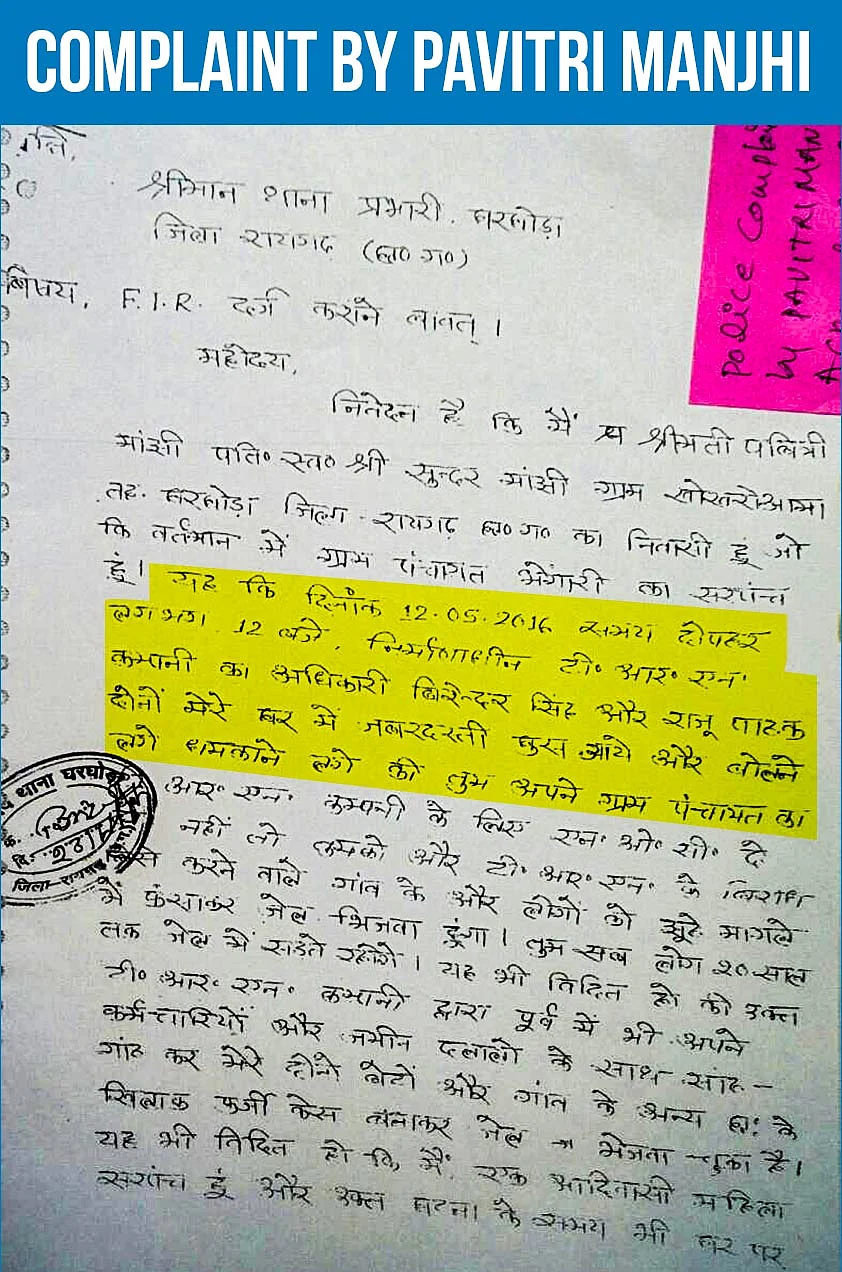 COMPLAINT BY PAVITRI MANJHI
प्रति,
श्रीमान थाना प्रभारी. घरघोड़ा
जिला रायगढ़ (छ० ग०)
Police Compla
by PAVITRI MAN
विषय, F.I.R. दर्ज कराने बावत् ।
महोदय,
निवेदन है कि मैं श्रीमती पवित्री
मांझी पति० स्व० श्री सुन्दर मांझी ग्राम खोखरोआमा
तह. घरघोड़ा जिला रायगढ़ छ० ग० का निवासी हूं जो
कि वर्तमान में ग्राम पंचायत भेंगारी का सरपंच
हूं। यह कि दिनांक 12.05.2016 समय दोपहर
लगभग 12 बजे, निर्माणाधीन टी० आर० एन०
कम्पनी का अधिकारी बिरेन्दर सिंह और राजू पाठक
दोनों मेरे घर में जबरदस्ती घुस आये और बोलने
लगे धमकाने लगे की तुम अपने ग्राम पंचायत का
आर० एन० कम्पनी के लिए एन० ओ० सी० दे
नहीं तो तुमको और टी० आर० एन० के
करने वाले गांव के और लोगों को झूठे मामले
में फंसाकर जेल भिजवा दूंगा। तुम सब लोग २० साल
तक जेल में सड़ते रहोगे। यह भी विदित हो की उक्त
टी० आर० एन० कम्पनी द्वारा पूर्व में भी अपने
कर्मचारियों और जमीन दलालो के साथ सांठ -
गांठ कर मेरे दोनो बेटों और गांव के अन्य छः के
खिलाफ फर्जी केस बनाकर जेल भेजवा चुका है।
यह भी विदित हो कि मैं, एक आदिवासी महिला
सरपंच हूं और उक्त घटना के समय भी घर पर
थाना घरघोड़ा
जिला-रायगढ़